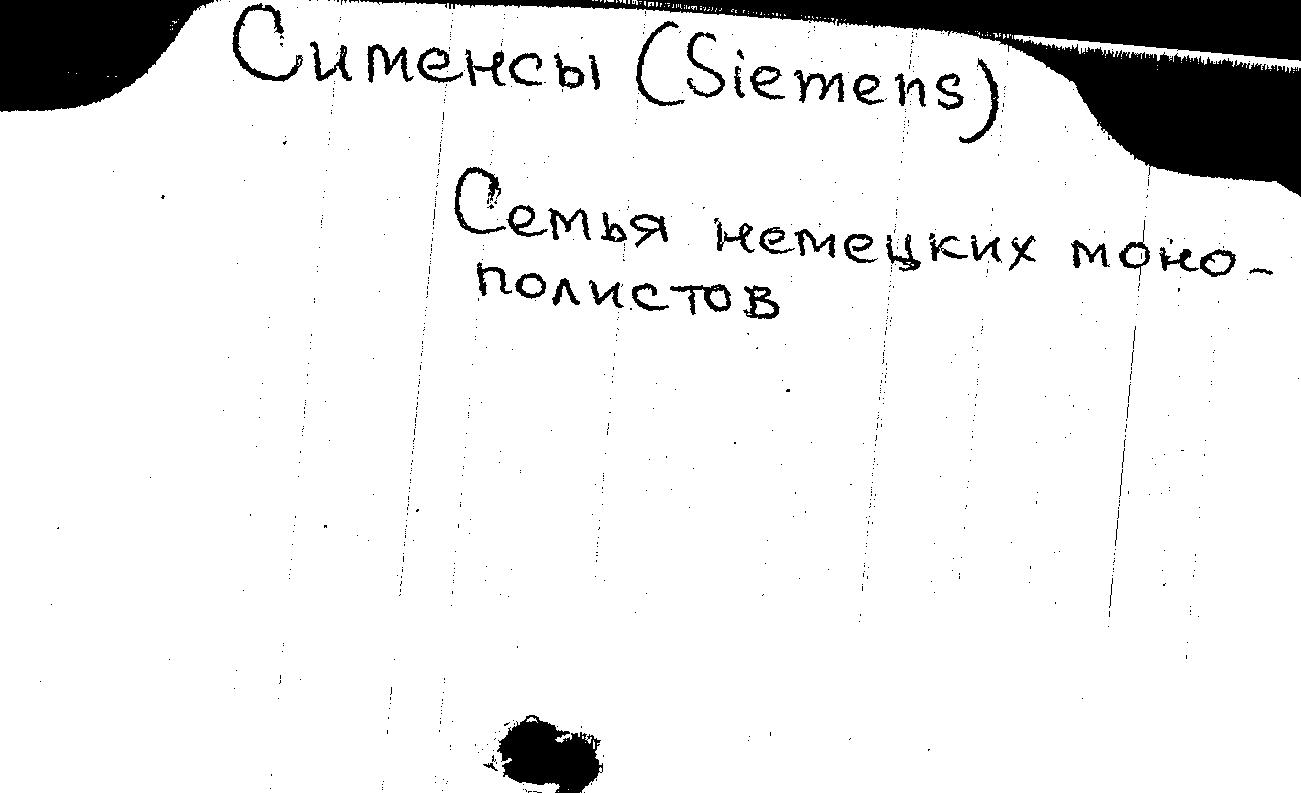 Сименсы (Siemens)
Семья немецких моно-
полистов